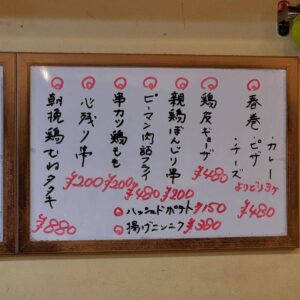 春巻
・カレー
・ピザ
・チーズ
よりどり3ヶ
¥480
鶏皮ギョーザ
¥480
親鶏ぼんじり串
¥200
ピーマン肉詰フライ
¥480
串カツ鶏もも
¥200
心残り串
¥200
朝挽鶏むねタタキ
¥880
ハッシュドポテト ¥150
揚げニンニク ¥380